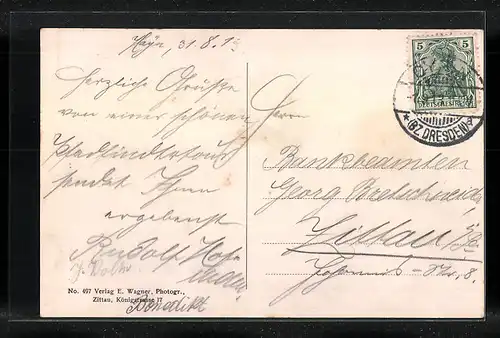 31.8.1
herzliche Grüße
von einer schönen
sendet Ihnen
ergebenst
Rudolf
Benedikt
No. 497 Verlag E. Wagner, Photogr.,
Zittau, Königstrasse 17
Herrn
Bankbeamten
Georg Bretschneider
Zittau i/Sa.
Johannis-Str. 8.
5 5
DEUTSCHES REICH
*(BZ.DRESDEN)